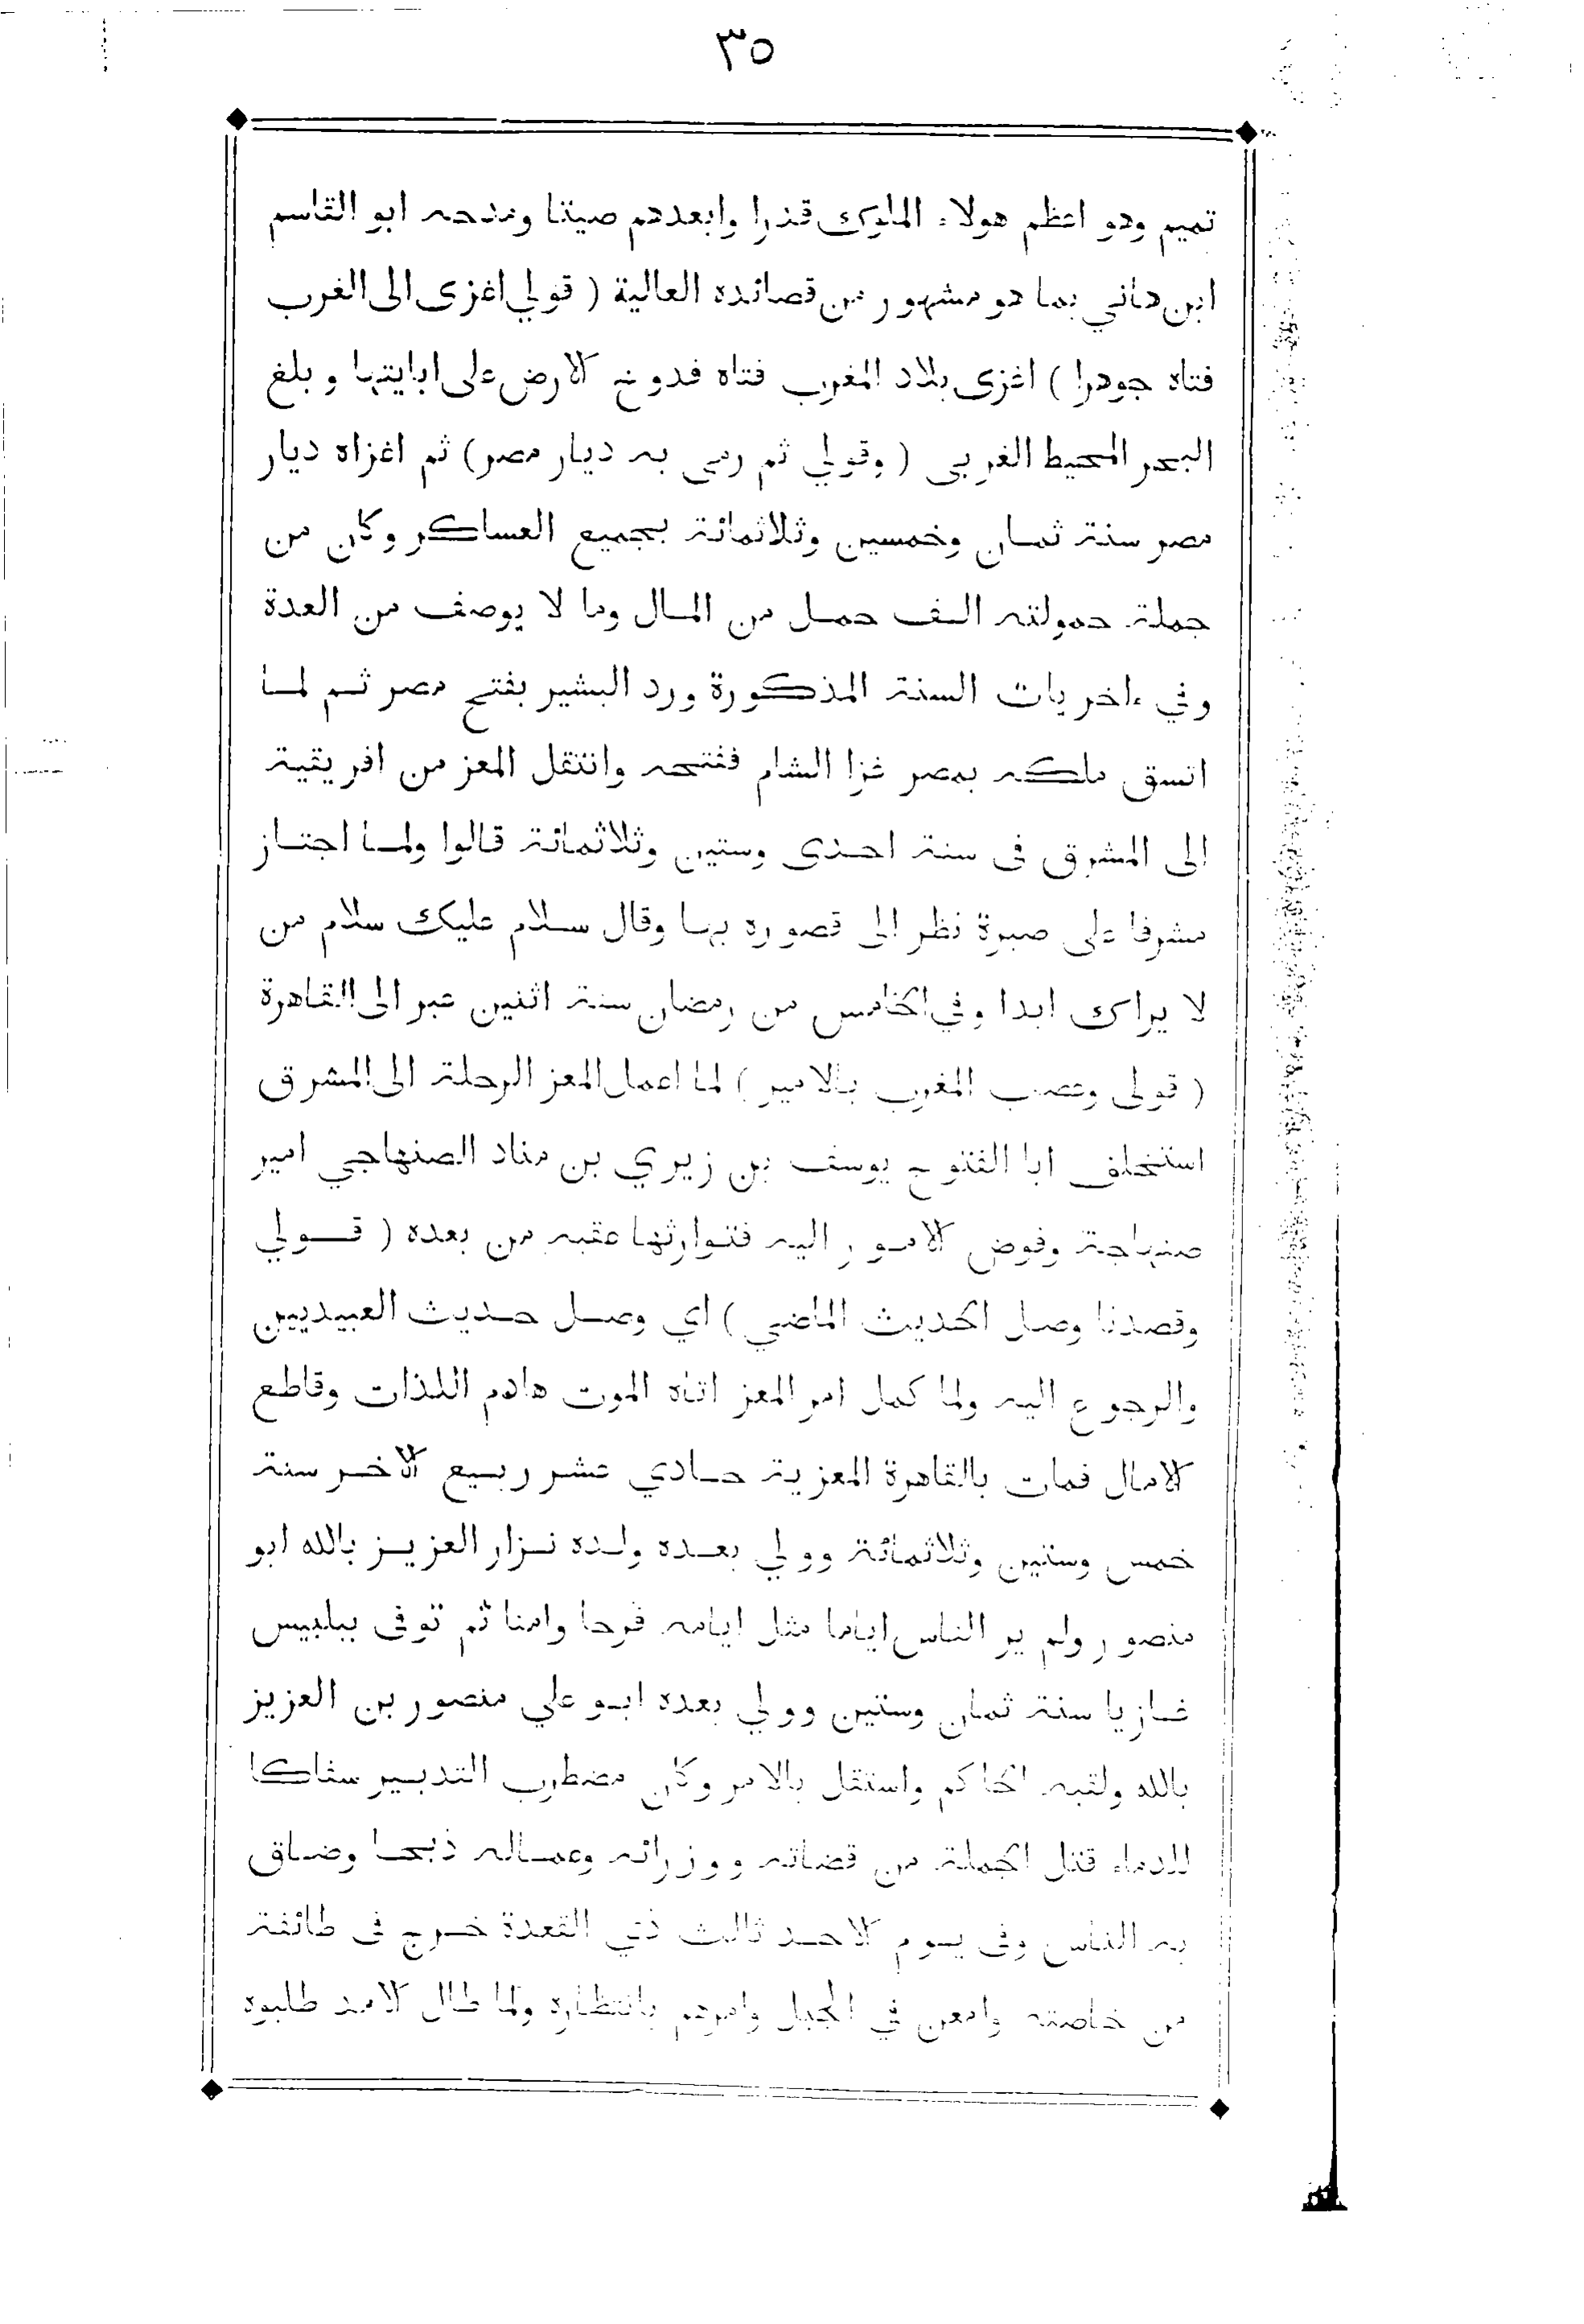 ٣٥
تميم وهو اعظم هولاء الملوك قدرا وابعدهم صيتا ومدحه ابو القاسم
ابن هاني بما هو مشهور من قصائده العالية ( قولي اغزى الى الغرب
فتاه جوهرا ) اغزى بلاد المغرب فتاه فدوخ الارض على ابايتها وبلغ
البحر المحيط الغربى ( وقولي ثم رمى به ديار مصر ) ثم اغزاه ديار
مصر سنة ثمان وخمسين وثلاثمائة بجميع العساكر وكان من
جملة حمولته الف حمل من المال وما لا يوصف من العدة
وفي ءاخريات السنة المذكورة ورد البشير بفتح مصر ثم لما
اتسق ملكه بمصر غزا الشام ففتحه وانتقل المعز من افريقية
الى المشرق فى سنة احدى وستين وثلاثمائة قالوا ولما اجتاز
مشرفا على صبرة نظر الى قصوره بها وقال سلام عليك سلام من
لا يراك ابدا وفي الخامس من رمضان سنة اثنين عبر الى القاهرة
( قولى وعصب المغرب بالامير ) لما اعمل المعز الرحلة الى المشرق
استخلف ابا الفتوح يوسف بن زيري بن مناد الصنهاجي امير
صنهاجة وفوض الامور اليه فتوارثها عقبه من بعده ( قولي
وقصدنا وصل الحديث الماضي ) اي وصل حديث العبيديين
والرجوع اليه ولما كمل امر المعز اتاه الموت هادم اللذات وقاطع
الامال فمات بالقاهرة المعزية حادي عشر ربيع الاخر سنة
خمس وستين وثلاثمائة وولي بعده ولده نزار العزيز بالله ابو
منصور ولم ير الناس اياما مثل ايامه فرحا وامنا ثم توفى ببلبيس
غازيا سنة ثمان وستين وولي بعده ابو علي منصور بن العزيز
بالله ولقبه الحاكم واستقل بالامر وكان مضطرب التدبير سفاكا
للدماء قتل الجملة من قضاته ووزرائه وعماله ذبحا وضاق
به الناس وفى يوم الاحد ثالث ذي القعدة خرج فى طائفة
من خاصته وامعن في الجبل وامرهم بانتظاره ولما طال الامد طلبوه